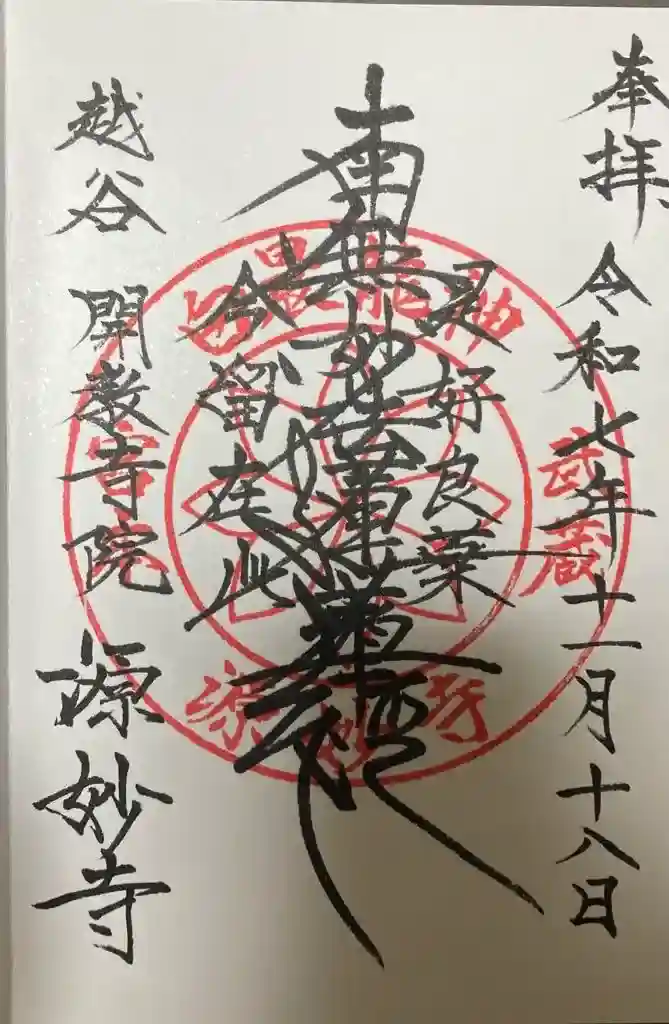 奉拝 令和七年十一月十八日
是好良薬
南無妙法蓮華經
今留在此
越谷 開教寺院 源妙寺
武蔵